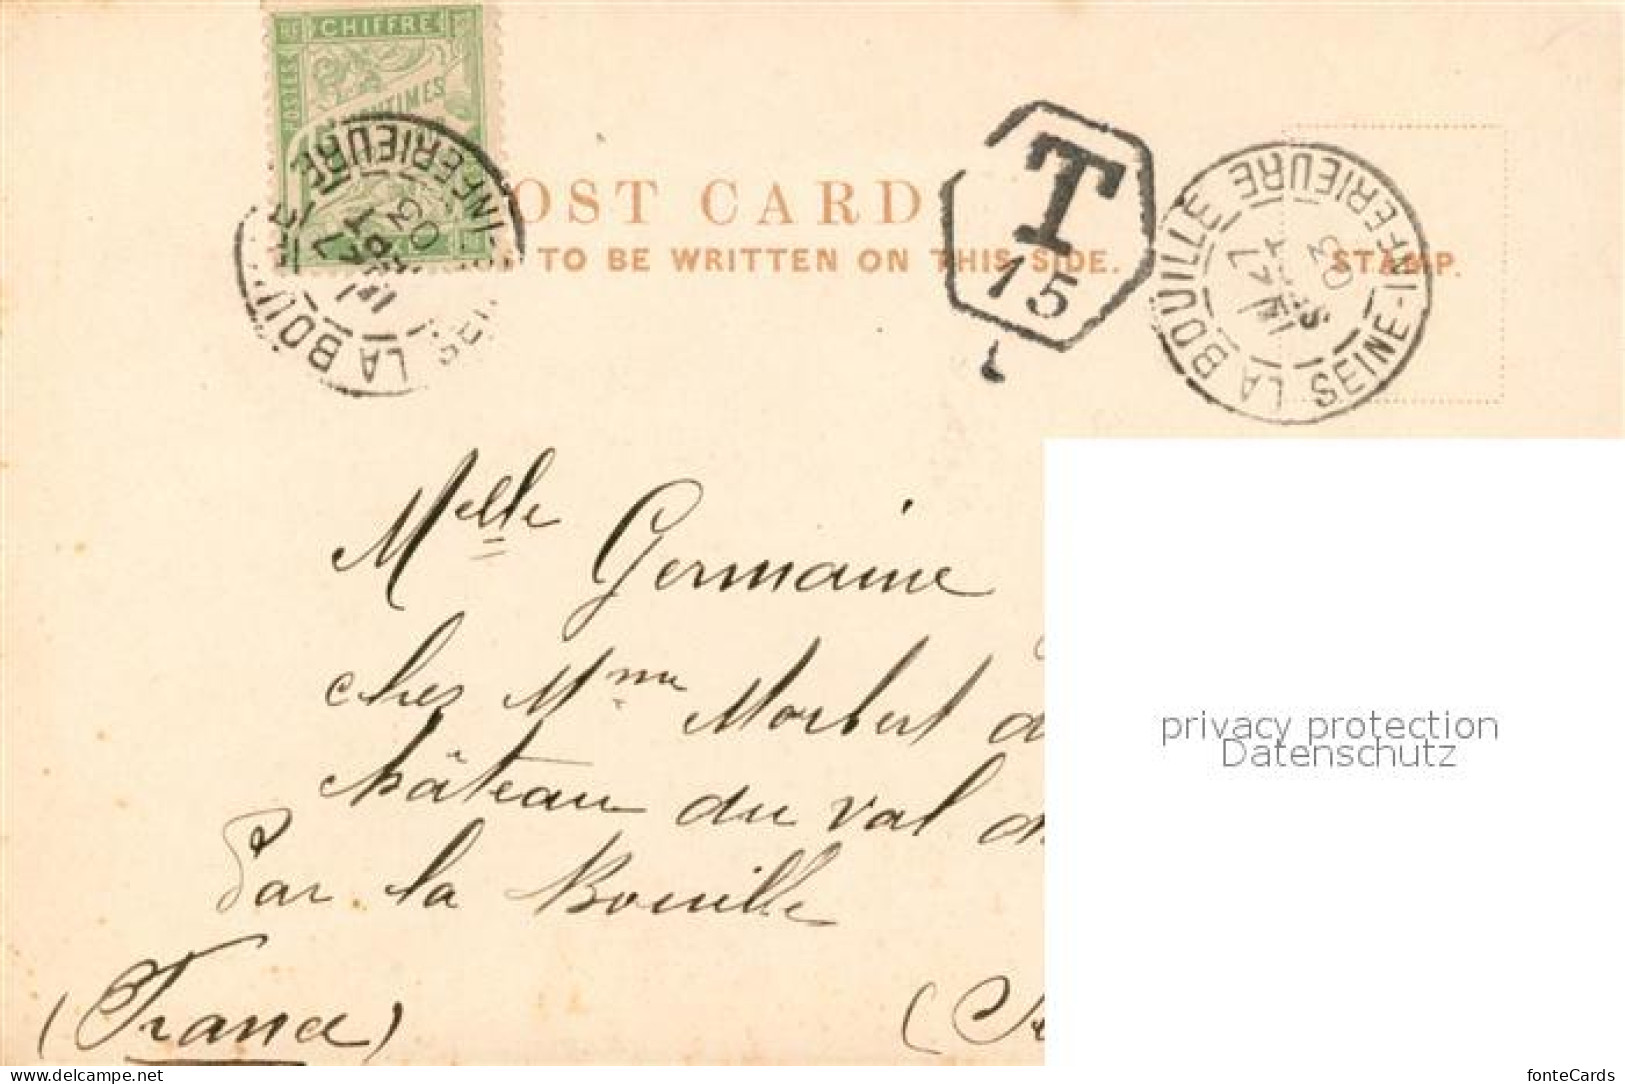 CHIFFRE
POSTES
OST CARD
TO BE WRITTEN ON THIS SIDE.
STAMP.
T
15
LA BOUILLE
SEINE-INFERIEURE
03
LA BOU
INFERIEURE
03
Melle Germaine
chez Mme Morbert d
château du val d
Par la Bouille
(France)
privacy protection
Datenschutz
www.delcampe.net
fonteCards